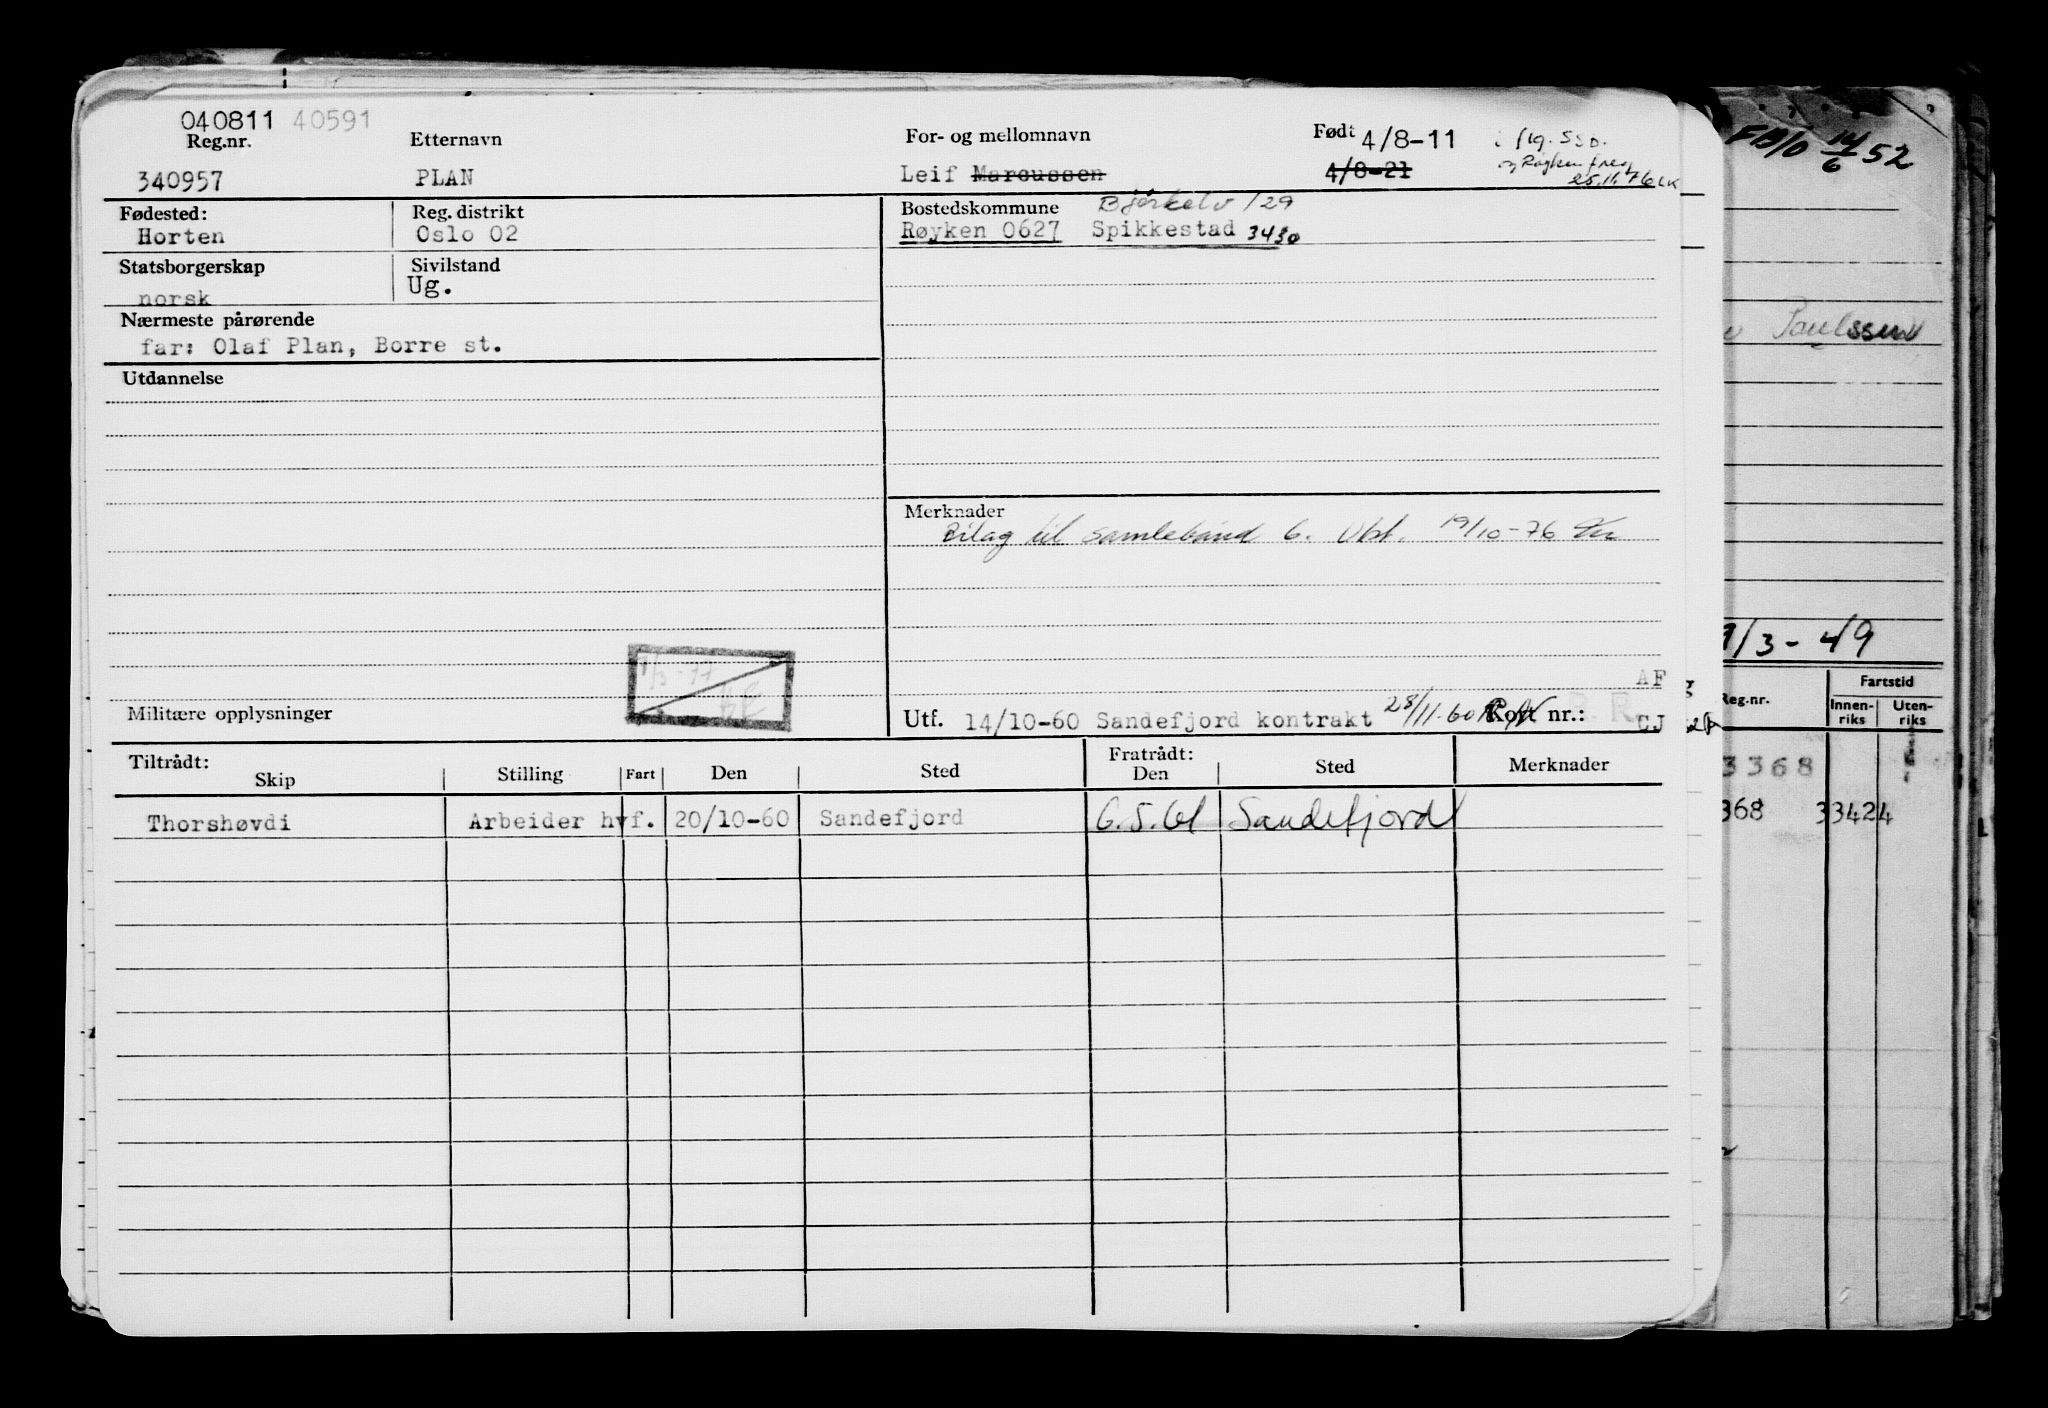 040811 40591
Reg.nr. Etternavn For- og mellomnavn Født 4/8-11
340957 PLAN Leif Marcussen 4/8-21
25.11.76 LK
Fødested: Reg. distrikt Bostedskommune Bjørkelv 129
Horten Oslo 02 Røyken 0627 Spikkestad 3430
Statsborgerskap Sivilstand
norsk Ug.
Nærmeste pårørende
far: Olaf Plan, Borre st.
Utdannelse
Merknader
Bilag til samlebånd 6. Utst. 19/10-76
9/3-77
AF
Militære opplysninger Utf. 14/10-60 Sandefjord kontrakt 28/11-60 Kort nr.: CJ
Tiltrådt: Fratrådt:
Skip Stilling Fart Den Sted Den Sted Merknader
Thorshøvdi Arbeider hvf. 20/10-60 Sandefjord 6.5.61 Sandefjord
14/6 52
Paulssen
1/3-49
Reg.nr. Fartstid
Innen-riks Uten-riks
3368
368 33424